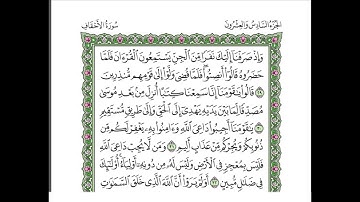 الجزء السادس والعشرون
سورة الأحقاف
وَإِذْ صَرَفْنَا إِلَيْكَ نَفَرًا مِّنَ الْجِنِّ يَسْتَمِعُونَ الْقُرْءَانَ فَلَمَّا
حَضَرُوهُ قَالُوا أَنصِتُوا فَلَمَّا قُضِىَ وَلَّوْا إِلَىٰ قَوْمِهِم مُّنذِرِينَ
٢٩ قَالُوا يَٰقَوْمَنَا إِنَّا سَمِعْنَا كِتَٰبًا أُنزِلَ مِنۢ بَعْدِ مُوسَىٰ
مُصَدِّقًا لِّمَا بَيْنَ يَدَيْهِ يَهْدِىٓ إِلَى الْحَقِّ وَإِلَىٰ طَرِيقٍ مُّسْتَقِيمٍ
٣٠ يَٰقَوْمَنَآ أَجِيبُوا دَاعِىَ اللَّهِ وَءَامِنُوا بِهِۦ يَغْفِرْ لَكُم مِّن
ذُنُوبِكُمْ وَيُجِرْكُم مِّنْ عَذَابٍ أَلِيمٍ ٣١ وَمَن لَّا يُجِبْ دَاعِىَ اللَّهِ
فَلَيْسَ بِمُعْجِزٍ فِى الْأَرْضِ وَلَيْسَ لَهُۥ مِن دُونِهِۦٓ أَوْلِيَآءُ أُولَٰٓئِكَ
فِى ضَلَٰلٍ مُّبِينٍ ٣٢ أَوَلَمْ يَرَوْا أَنَّ اللَّهَ الَّذِى خَلَقَ السَّمَٰوَٰتِ